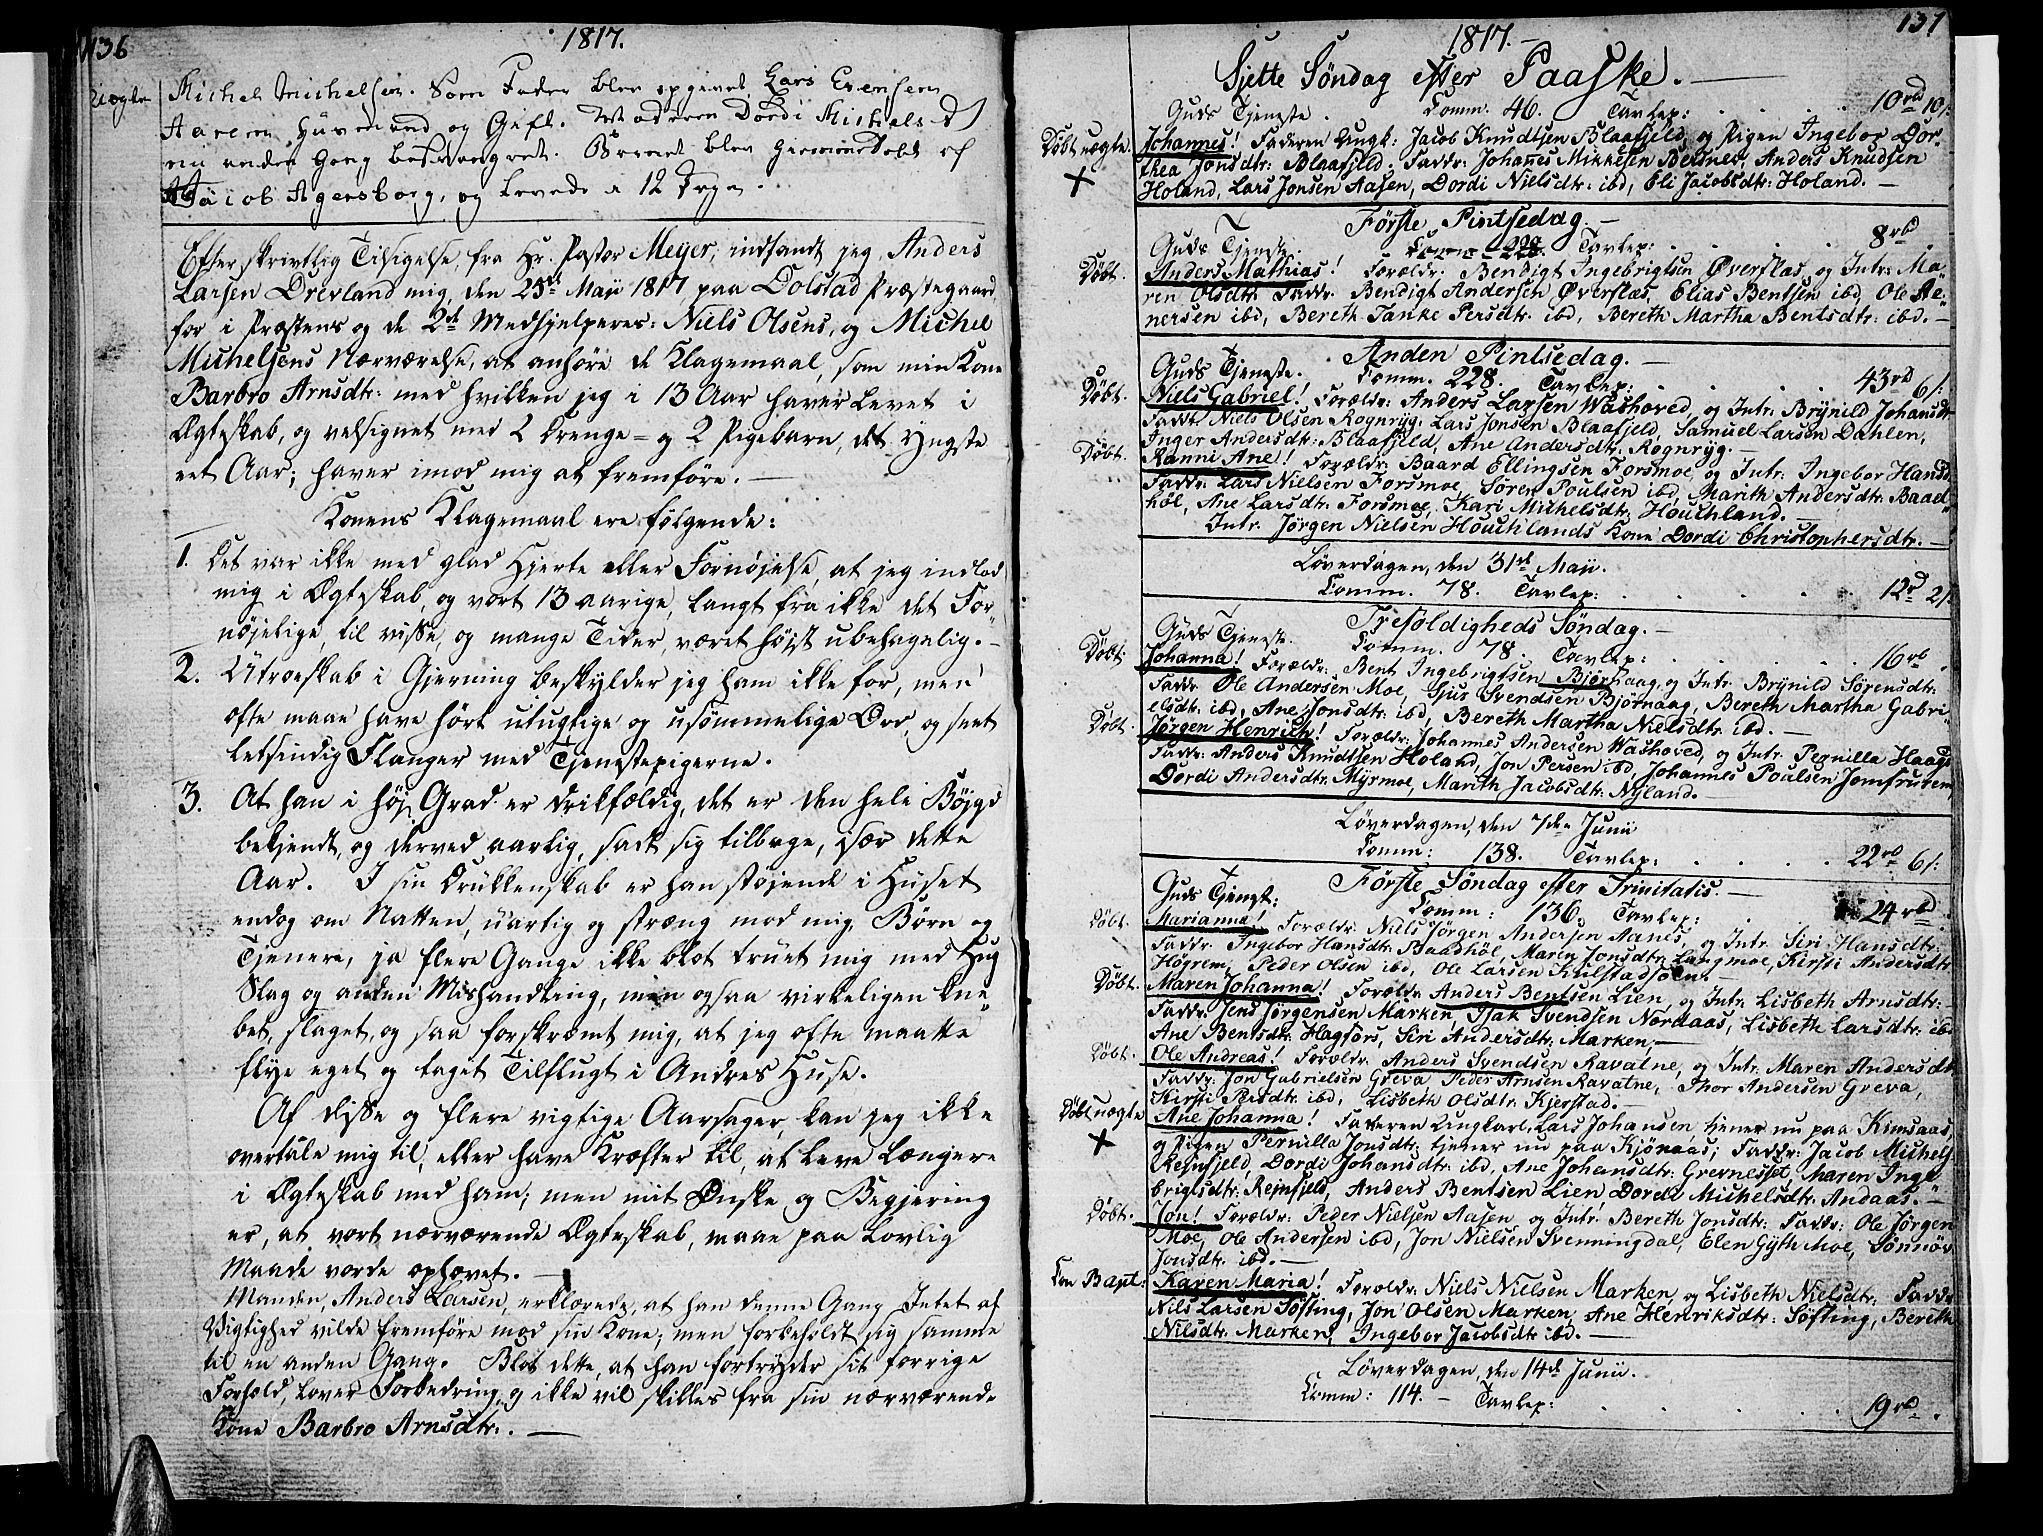 136
1817.
uægte
Michel Michelsen. Som Fader blev opgivet Lars Evensen
Aarem Huusmand og Gift. Moderen Dordi Michelsd
nu anden Gang besvangret. Barnet blev hiemmedøbt af
Jaiob Agersborg, og levede i 12 Dage.
Efter skrivtlig Tilsigelse, fra Hr. Pastor Meyer, indfandt jeg Anders
Larsen Drevland mig, den 25de Maji 1817 paa Dolstad Præstegaard,
for i Præstens og de 2de Medhjelperes: Niels Olsens, og Michel
Michelsens Nærværelse, at anhøre de Klagemaal, som min Kone
Barbro Arnsdtr: med hvilken jeg i 13 Aar haver levet i
Ægteskab, og velsignet med 2 Drenge- og 2 Pigebarn, det yngste
eet Aar; haver imod mig at fremføre. —
Konens Klagemaal ere følgende:
1. Det var ikke med glad Hjerte eller Fornøjelse, at jeg indlod
mig i Ægteskab, og vort 13 aarige, langt fra ikke det For-
nøjelige, til visse, og mange Tider, været højst ubehagelig. -
2. Utroeskab i Gjerning beskylder jeg ham ikke for, men
ofte maae have hørt utugtige og usømmelige Ord, og seet
letsindig Flanger med Tjenestepigerne.
3. At han i høj Grad er drikfældig, det er den hele Bøjgd
bekjendt, og derved aarlig, sadt sig tilbage, især dette
Aar. I sin Drukkenskab er han støjende i Huset
endog om Natten, uartig og stræng mod mig, Børn og
Tjenere, ja flere Gange ikke blot truet mig med Hug
Slag og anden Mishandling, men ogsaa virkeligen kne-
bet, slaget, og saa forskræmt mig, at jeg ofte maatte
flye eget og taget Tilflugt i Andres Huse.
Af disse og flere vigtige Aarsager kan jeg ikke
overtale mig til, eller have Kræfter til, at leve længere
i Ægteskab med ham; men mit Ønske og Begjering
er, at vort nærværende Ægteskab, maae paa lovlig
Maade vorde ophævet. —
Manden, Anders Larsen, erklærede, at han denne Gang Intet af
Vigtighed vilde fremføre mod sin Kone; men forbeholdt sig samme
til en anden Gang. Blot dette, at han fortryder sit forrige
Forhold, lover Forbedring, og ikke vil skilles fra sin nærværende
Kone Barbro Arnsdtr. —
137
1817. -
Sjette Søndag efter Paaske. —
Guds Tjeneste. Comm. 46. Tavlep: . . . 10rbd 10/:
Døbt uægte. Johannes! Faderen Ungk: Jacob Knudtsen Blaafjeld, og Pigen Ingebor Dor-
thea Jonsdtr: Blaafjeld. Faddr: Johannes Mikkelsen Bersnes, Anders Knudsen
Holand, Lars Jonsen Aasen, Dordi Nielsdtr: ibd, Eli Jacobsdtr: Holand. —
Første Pintsedag. -
Guds Tjeneste. Comm. 228. Tavlep: . . . 8rb
Døbt. Anders Mathias! Forældr: Bendigt Ingebrigtsen Øverslas, og Intr: Ma-
ren Olsdtr. Faddr. Bendigt Andersen Øverslæs, Elias Bentsen ibd, Ole
nersen ibd, Bereth Tanke Persdtr. ibd, Bereth Martha Bentsdtr: ibd. -
Anden Pintsedag. —
Guds Tjeneste. Comm. 228. Tavlep: . . . 43rd 6/:
Døbt. Niels Gabriel! Forældr: Anders Larsen Washoved, og Intr: Brÿnild Johansdtr
Faddr: Niels Olsen Rognryg, Lars Jonsen Blaafjeld, Samuel Larsen Dahlen,
Inger Andersdtr: Blaafjeld, Ane Andersdtr: Rognryg. —
Døbt. Ranni Ane! Forældr: Baard Ellingsen Forsmoe, og Intr: Ingebor Hansd.
Faddr: Lars Nielsen Forsmoe, Søren Poulsen ibd, Marith Andersdtr: Baad-
høl, Ane Larsdtr: Forsmoe, Kari Michelsdtr: Houchland. —
Intr. Jørgen Nielsen Houchlands Kone Dordi Christophersdtr. —
Løverdagen, den 31te Maji.
Comm. 78. Tavlep: . . . 12rd 2/:
Trefoldigheds Søndag. —
Guds Tjeneste. Comm. 78. Tavlep: . . . 16rb.
Døbt. Johanna! Forældr: Bent Ingebrigtsen Bjørnaag, og Intr: Brÿnild Sørensdtr:
Faddr Ole Andersen Moe, Sjur Svendsen Bjørnaag, Bereth Martha Gabri-
elsdtr. ibd, Ane Jonsdtr: ibd, Bereth Martha Nielsdtr: ibd. —
Døbt. Jørgen Henrich! Forældr: Johannes Andersen Washoved, og Intr: Pernilla Haagsd
Faddr: Anders Knudtsen Holand, Jon Persen ibd, Johannes Poulsen Jomfruren,
Dordi Andersdtr: Myrmoe, Marith Jacobsdtr: Nyland. —
Løverdagen, den 7de Junii
Comm: 138. Tavlep: . . . 22rb 6/:
Første Søndag efter Trinitatis. —
Guds Tjenest: Comm: 136. Tavlep: . . . 24rbd
Døbt. Marianna! Forældr: Niels Jørgen Andersen Aanes, og Intr. Siri Hansdtr:
Faddr. Ingebor Hansdtr: Baadhøl, Maren Jonsdtr: Langmoe, Kirsti Andersdtr
Høgrem, Peder Olsen ibd, Ole Larsen Kulstadsøen. —
Døbt. Maren Johanna! Forældr: Anders Bentsen Lien, og Intr: Lisbeth Arnsdtr: -
Faddr: Jens Jørgensen Marken, Isak Svendsen Nordaas, Lisbeth Larsdtr: ibd
Ane Bentsdtr: Hagfors, Siri Andersdtr: Marken. —
Døbt. Ole Andreas! Forældr: Anders Svendsen Ravatne, og Intr: Maren Andersdtr
Faddr: Jon Gabrielsen Greva, Peder Arnsen Ravatne, Thor Andersen Greva,
Kirsti Persdtr: ibd, Lisbeth Olsdtr: Kjerstad. —
Døbt uægte Ane Johanna! Faderen Ungkarl, Lars Johansen tjener nu paa Kimsaas,
og Pigen Pernilla Jonsdtr: tjener nu paa Kjønaas; Faddr: Jacob Michels
Rejnfjeld, Dordi Johansdtr: ibd, Ane Johansdtr: Grevnesset, Maren Inge-
brigtsdtr: Rejnfjeld, Anders Bentsen Lien, Dordi Michelsdtr: Andaas. —
Døbt. Jon! Forældr: Peder Nielsen Aasen, og Intr: Bereth Jonsdtr: Faddr: Ole Jørgen
Moe, Ole Andersen ibd, Jon Nielsen Svenningdal, Elen Gÿth Moe, Sønnøv
Jonsdtr. ibd. —
Con Bapt: Karen Maria! Forældr: Niels Nielsen Marken, og Lisbeth Nielsdtr: Faddr
Nils Larsen Søfting, Jon Olsen Marken, Ane Henriksdtr: Søfting, Bereth
Nilsdtr: Marken, Ingebor Jacobsdtr: ibd. —
Løverdagen, den 14de Junii.
Comm: 114. - Tavlep: . . . 19rbd.